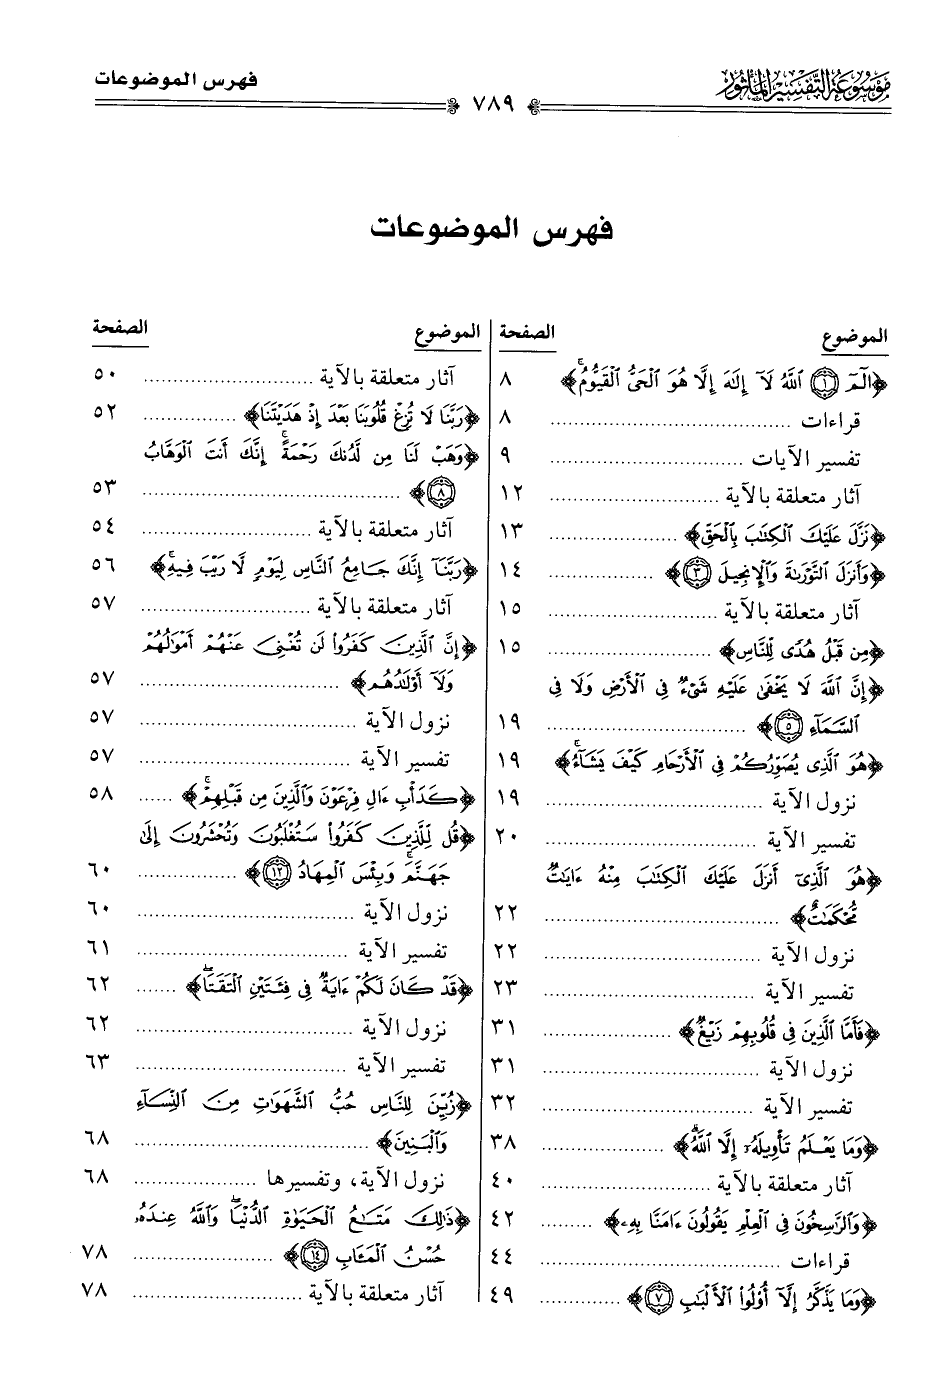 موسوعة التفسير المأثور
٧٨٩
فهرس الموضوعات
فهرس الموضوعات
الموضوع الصفحة
﴿الٓمٓ ١ ٱللَّهُ لَآ إِلَٰهَ إِلَّا هُوَ ٱلْحَىُّ ٱلْقَيُّومُ ۚ﴾ ٨
قراءات ........ ٨
تفسير الآيات ........ ٩
آثار متعلقة بالآية ........ ١٢
﴿نَزَّلَ عَلَيْكَ ٱلْكِتَٰبَ بِٱلْحَقِّ﴾ ........ ١٣
﴿وَأَنزَلَ ٱلتَّوْرَىٰةَ وَٱلْإِنجِيلَ ٣﴾ ........ ١٤
آثار متعلقة بالآية ........ ١٥
﴿مِن قَبْلُ هُدًى لِّلنَّاسِ﴾ ........ ١٥
﴿إِنَّ ٱللَّهَ لَا يَخْفَىٰ عَلَيْهِ شَىْءٌ فِى ٱلْأَرْضِ وَلَا فِى
ٱلسَّمَآءِ ٥﴾ ........ ١٩
﴿هُوَ ٱلَّذِى يُصَوِّرُكُمْ فِى ٱلْأَرْحَامِ كَيْفَ يَشَآءُ ۚ﴾ ١٩
نزول الآية ........ ١٩
تفسير الآية ........ ٢٠
﴿هُوَ ٱلَّذِىٓ أَنزَلَ عَلَيْكَ ٱلْكِتَٰبَ مِنْهُ ءَايَٰتٌ
مُّحْكَمَٰتٌ﴾ ........ ٢٢
نزول الآية ........ ٢٢
تفسير الآية ........ ٢٣
﴿فَأَمَّا ٱلَّذِينَ فِى قُلُوبِهِمْ زَيْغٌ﴾ ........ ٣١
نزول الآية ........ ٣١
تفسير الآية ........ ٣٢
﴿وَمَا يَعْلَمُ تَأْوِيلَهُۥٓ إِلَّا ٱللَّهُ ۗ﴾ ........ ٣٨
آثار متعلقة بالآية ........ ٤٠
﴿وَٱلرَّٰسِخُونَ فِى ٱلْعِلْمِ يَقُولُونَ ءَامَنَّا بِهِۦ﴾ ........ ٤٢
قراءات ........ ٤٤
﴿وَمَا يَذَّكَّرُ إِلَّآ أُو۟لُوا۟ ٱلْأَلْبَٰبِ ٧﴾ ........ ٤٩
الموضوع الصفحة
آثار متعلقة بالآية ........ ٥٠
﴿رَبَّنَا لَا تُزِغْ قُلُوبَنَا بَعْدَ إِذْ هَدَيْتَنَا﴾ ........ ٥٢
﴿وَهَبْ لَنَا مِن لَّدُنكَ رَحْمَةً ۚ إِنَّكَ أَنتَ ٱلْوَهَّابُ
٨﴾ ........ ٥٣
آثار متعلقة بالآية ........ ٥٤
﴿رَبَّنَآ إِنَّكَ جَامِعُ ٱلنَّاسِ لِيَوْمٍ لَّا رَيْبَ فِيهِ ۚ﴾ ٥٦
آثار متعلقة بالآية ........ ٥٧
﴿إِنَّ ٱلَّذِينَ كَفَرُوا۟ لَن تُغْنِىَ عَنْهُمْ أَمْوَٰلُهُمْ
وَلَآ أَوْلَٰدُهُم﴾ ........ ٥٧
نزول الآية ........ ٥٧
تفسير الآية ........ ٥٧
﴿كَدَأْبِ ءَالِ فِرْعَوْنَ وَٱلَّذِينَ مِن قَبْلِهِمْ ۚ﴾ ........ ٥٨
﴿قُل لِّلَّذِينَ كَفَرُوا۟ سَتُغْلَبُونَ وَتُحْشَرُونَ إِلَىٰ
جَهَنَّمَ ۚ وَبِئْسَ ٱلْمِهَادُ ١٢﴾ ........ ٦٠
نزول الآية ........ ٦٠
تفسير الآية ........ ٦١
﴿قَدْ كَانَ لَكُمْ ءَايَةٌ فِى فِئَتَيْنِ ٱلْتَقَتَا ۖ﴾ ........ ٦٢
نزول الآية ........ ٦٢
تفسير الآية ........ ٦٣
﴿زُيِّنَ لِلنَّاسِ حُبُّ ٱلشَّهَوَٰتِ مِنَ ٱلنِّسَآءِ
وَٱلْبَنِينَ﴾ ........ ٦٨
نزول الآية، وتفسيرها ........ ٦٨
﴿ذَٰلِكَ مَتَٰعُ ٱلْحَيَوٰةِ ٱلدُّنْيَا ۖ وَٱللَّهُ عِندَهُۥ
حُسْنُ ٱلْمَـَٔابِ ١٤﴾ ........ ٧٨
آثار متعلقة بالآية ........ ٧٨